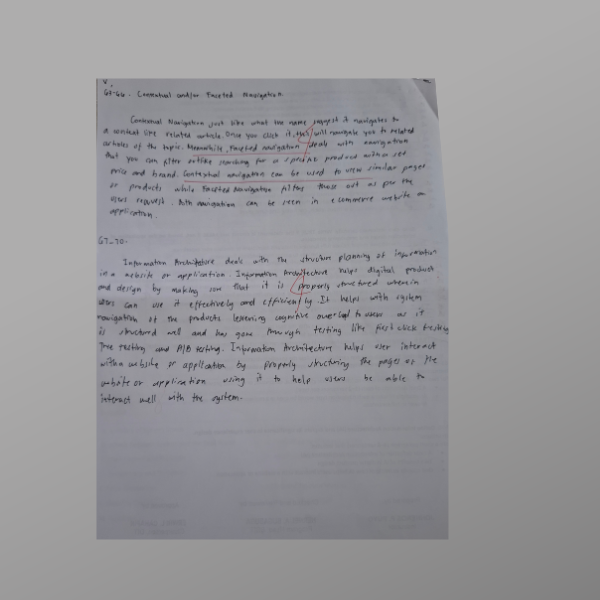 63-66 - Contextual and/or Faceted Navigation.
Contextual Navigation, just like what the name suggest it navigates to
a content like related article. Once you click it, this will navigate you to related
articles of the topic. Meanwhile, Faceted navigation deals with navigation
that you can filter outlike searching for a specific product with a set
price and brand. Contextual navigation can be used to view similar pages
or products while Faceted Navigation filters those out as per the
users request. Both navigation can be seen in e-commerce website or
application.
67-70-
Information Architecture deals with the structure planning of information
in a website or application. Information Architecture helps digital product
and design by making sure that it is properly structured wherein
users can use it effectively and efficiently. It helps with system
navigation of the products lessening cognitive overload to users as it
is structured well and has gone through testing like first click testing
Tree testing and A/B testing. Information Architecture helps user interact
with a website or application by properly structuring the pages of the
website or application using it to help users be able to
interact well with the system.